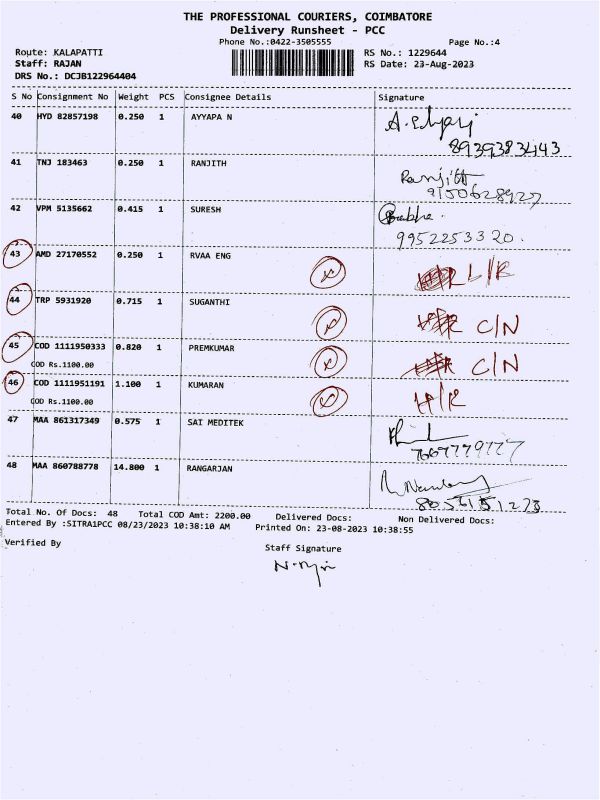 THE PROFESSIONAL COURIERS, COIMBATORE
Delivery Runsheet - PCC
Phone No.:0422-3505555 Page No.:4
Route: KALAPATTI RS No.: 1229644
Staff: RAJAN RS Date: 23-Aug-2023
DRS No.: DCJB122964404
S No Consignment No Weight PCS Consignee Details Signature
40 HYD 82857198 0.250 1 AYYAPA N
8939383443
41 TNJ 183463 0.250 1 RANJITH Ranjith
9150628927
42 VPM 5135662 0.415 1 SURESH
9952253320.
43 AMD 27170552 0.250 1 RVAA ENG X L/R
44 TRP 5931920 0.715 1 SUGANTHI X C/N
45 COD 1111950333 0.820 1 PREMKUMAR X C/N
COD Rs.1100.00
46 COD 1111951191 1.100 1 KUMARAN X H/R
COD Rs.1100.00
47 MAA 861317349 0.575 1 SAI MEDITEK
48 MAA 860788778 14.800 1 RANGARJAN
8056151273
Total No. Of Docs: 48 Total COD Amt: 2200.00 Delivered Docs: Non Delivered Docs:
Entered By :SITRA1PCC 08/23/2023 10:38:10 AM Printed On: 23-08-2023 10:38:55
Verified By
Staff Signature